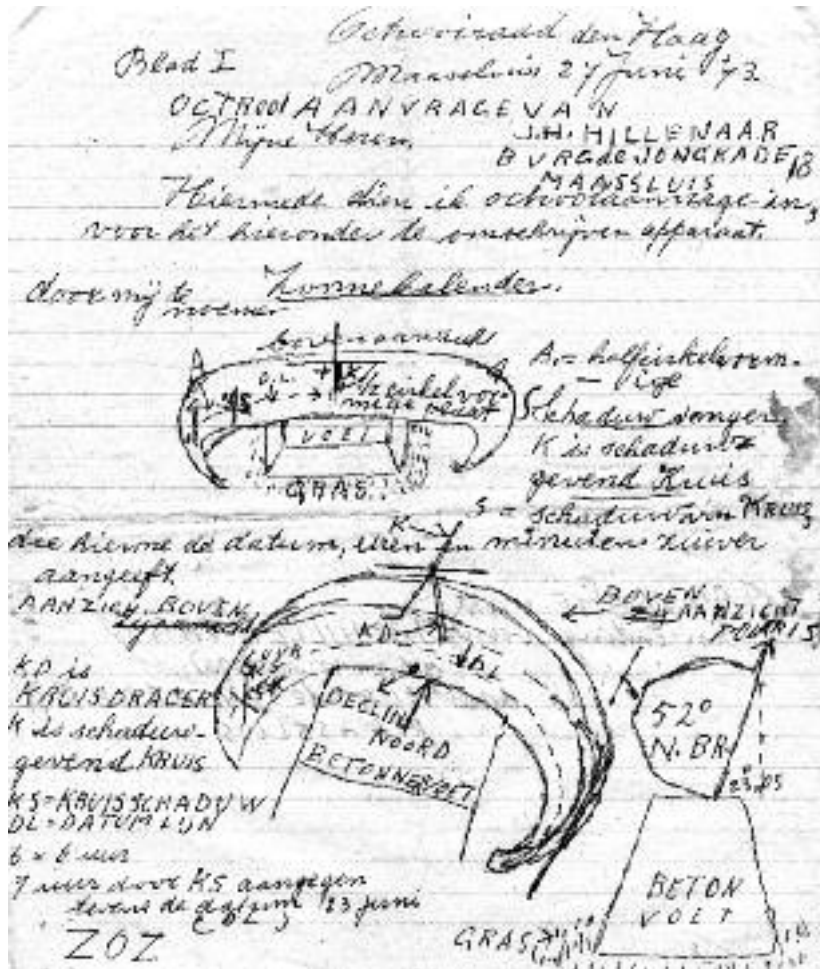 Octrooiraad den Haag
Blad I
Maassluis 27 Juni '73
OCTROOIAANVRAGE VAN
Mijne Heren,
J.H. HILLENAAR
BURG de JONGKADE 18
MAASSLUIS
Hiermede dien ik octrooiaanvrage in,
voor het hieronder te omschrijven apparaat.
door mij te noemen
Zonnekalender.
bovenaanzicht
K
1/2 cirkelvormige plaat
VOET
GRAS
A = halfcirkelvormige
Schaduwvanger
K is schaduw-
gevend Kruis
S = schaduw van KRUIS,
die hierme de datum, uren en minuten zuiver
aangeeft.
AANZICH BOVEN
K
KD
DL
UUR
DECLIN
NOORD
BETONNEVOET
BOVEN
AANZICHT
POOLRIS
52°
N.BR
23°
KD is
KRUISDRAGER
K is schaduw-
gevend KRUIS
KS=KRUISSCHADUW
DL=DATUMLIJN
6 = 6 uur
7 uur door KS aangegen
tevens de datum 23 juni
ZOZ
BETON
VOET
GRAS